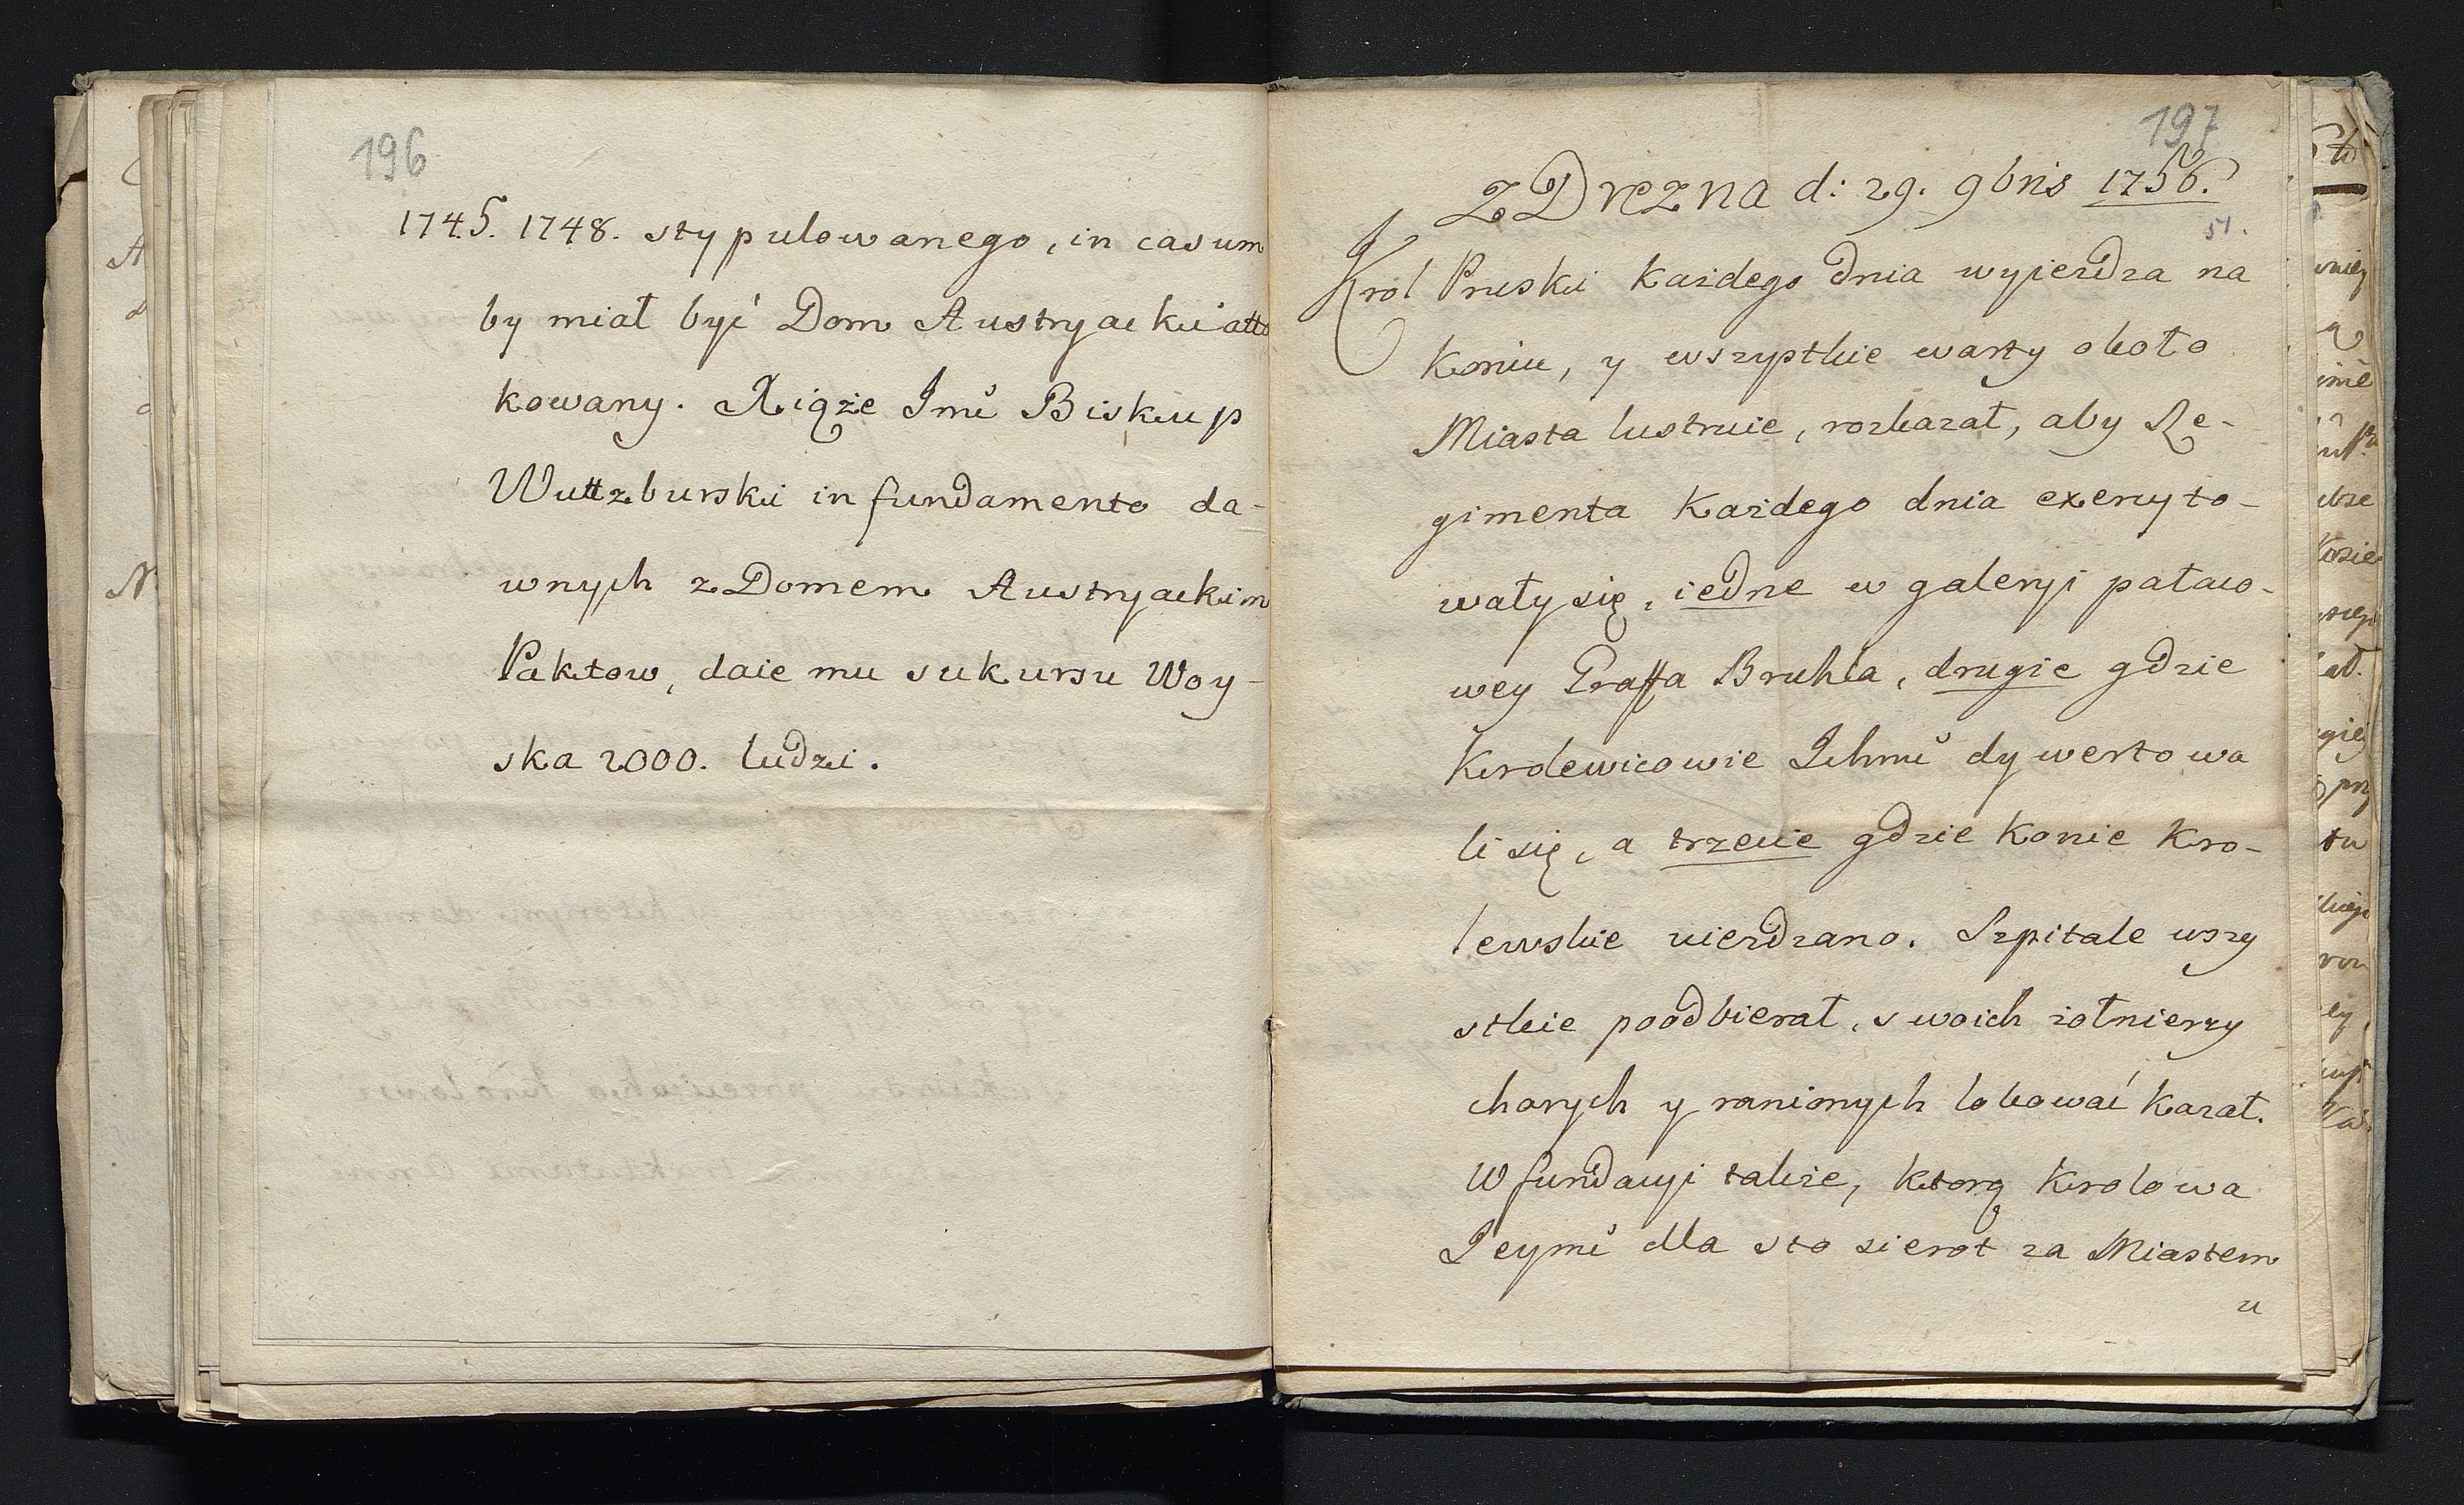 196
1745. 1748. stypulowanego, in casum
by miał być Dom Austryacki atta
kowany. Xiąże Jmć Biskup
Wuttzburski in fundamento da-
wnych z Domem Austryackim
Paktow, daie mu sukursu Woy-
ska 2000. ludzi.
197
Z Drezna d: 29. 9bris 1756.
51.
Krol Pruski każdego dnia wyjezdza na
koniu, y wszystkie warty około
Miasta lustruie, rozkazał, aby Re-
gimenta każdego dnia exercyto-
wały się, iedne w galeryi pałaco-
wey Graffa Bruhla, drugie gdzie
Krolewicowie Ichmć dywertowa
li się, a trzecie gdzie konie Kro-
lewskie uieżdzano. Szpitale wszy
stkie poodbierał, swoich żołnierzy
chorych y ranionych lokować kazał.
W fundacyi takze, ktorą Krolowa
Jeymć dla sto sierot za Miastem
u